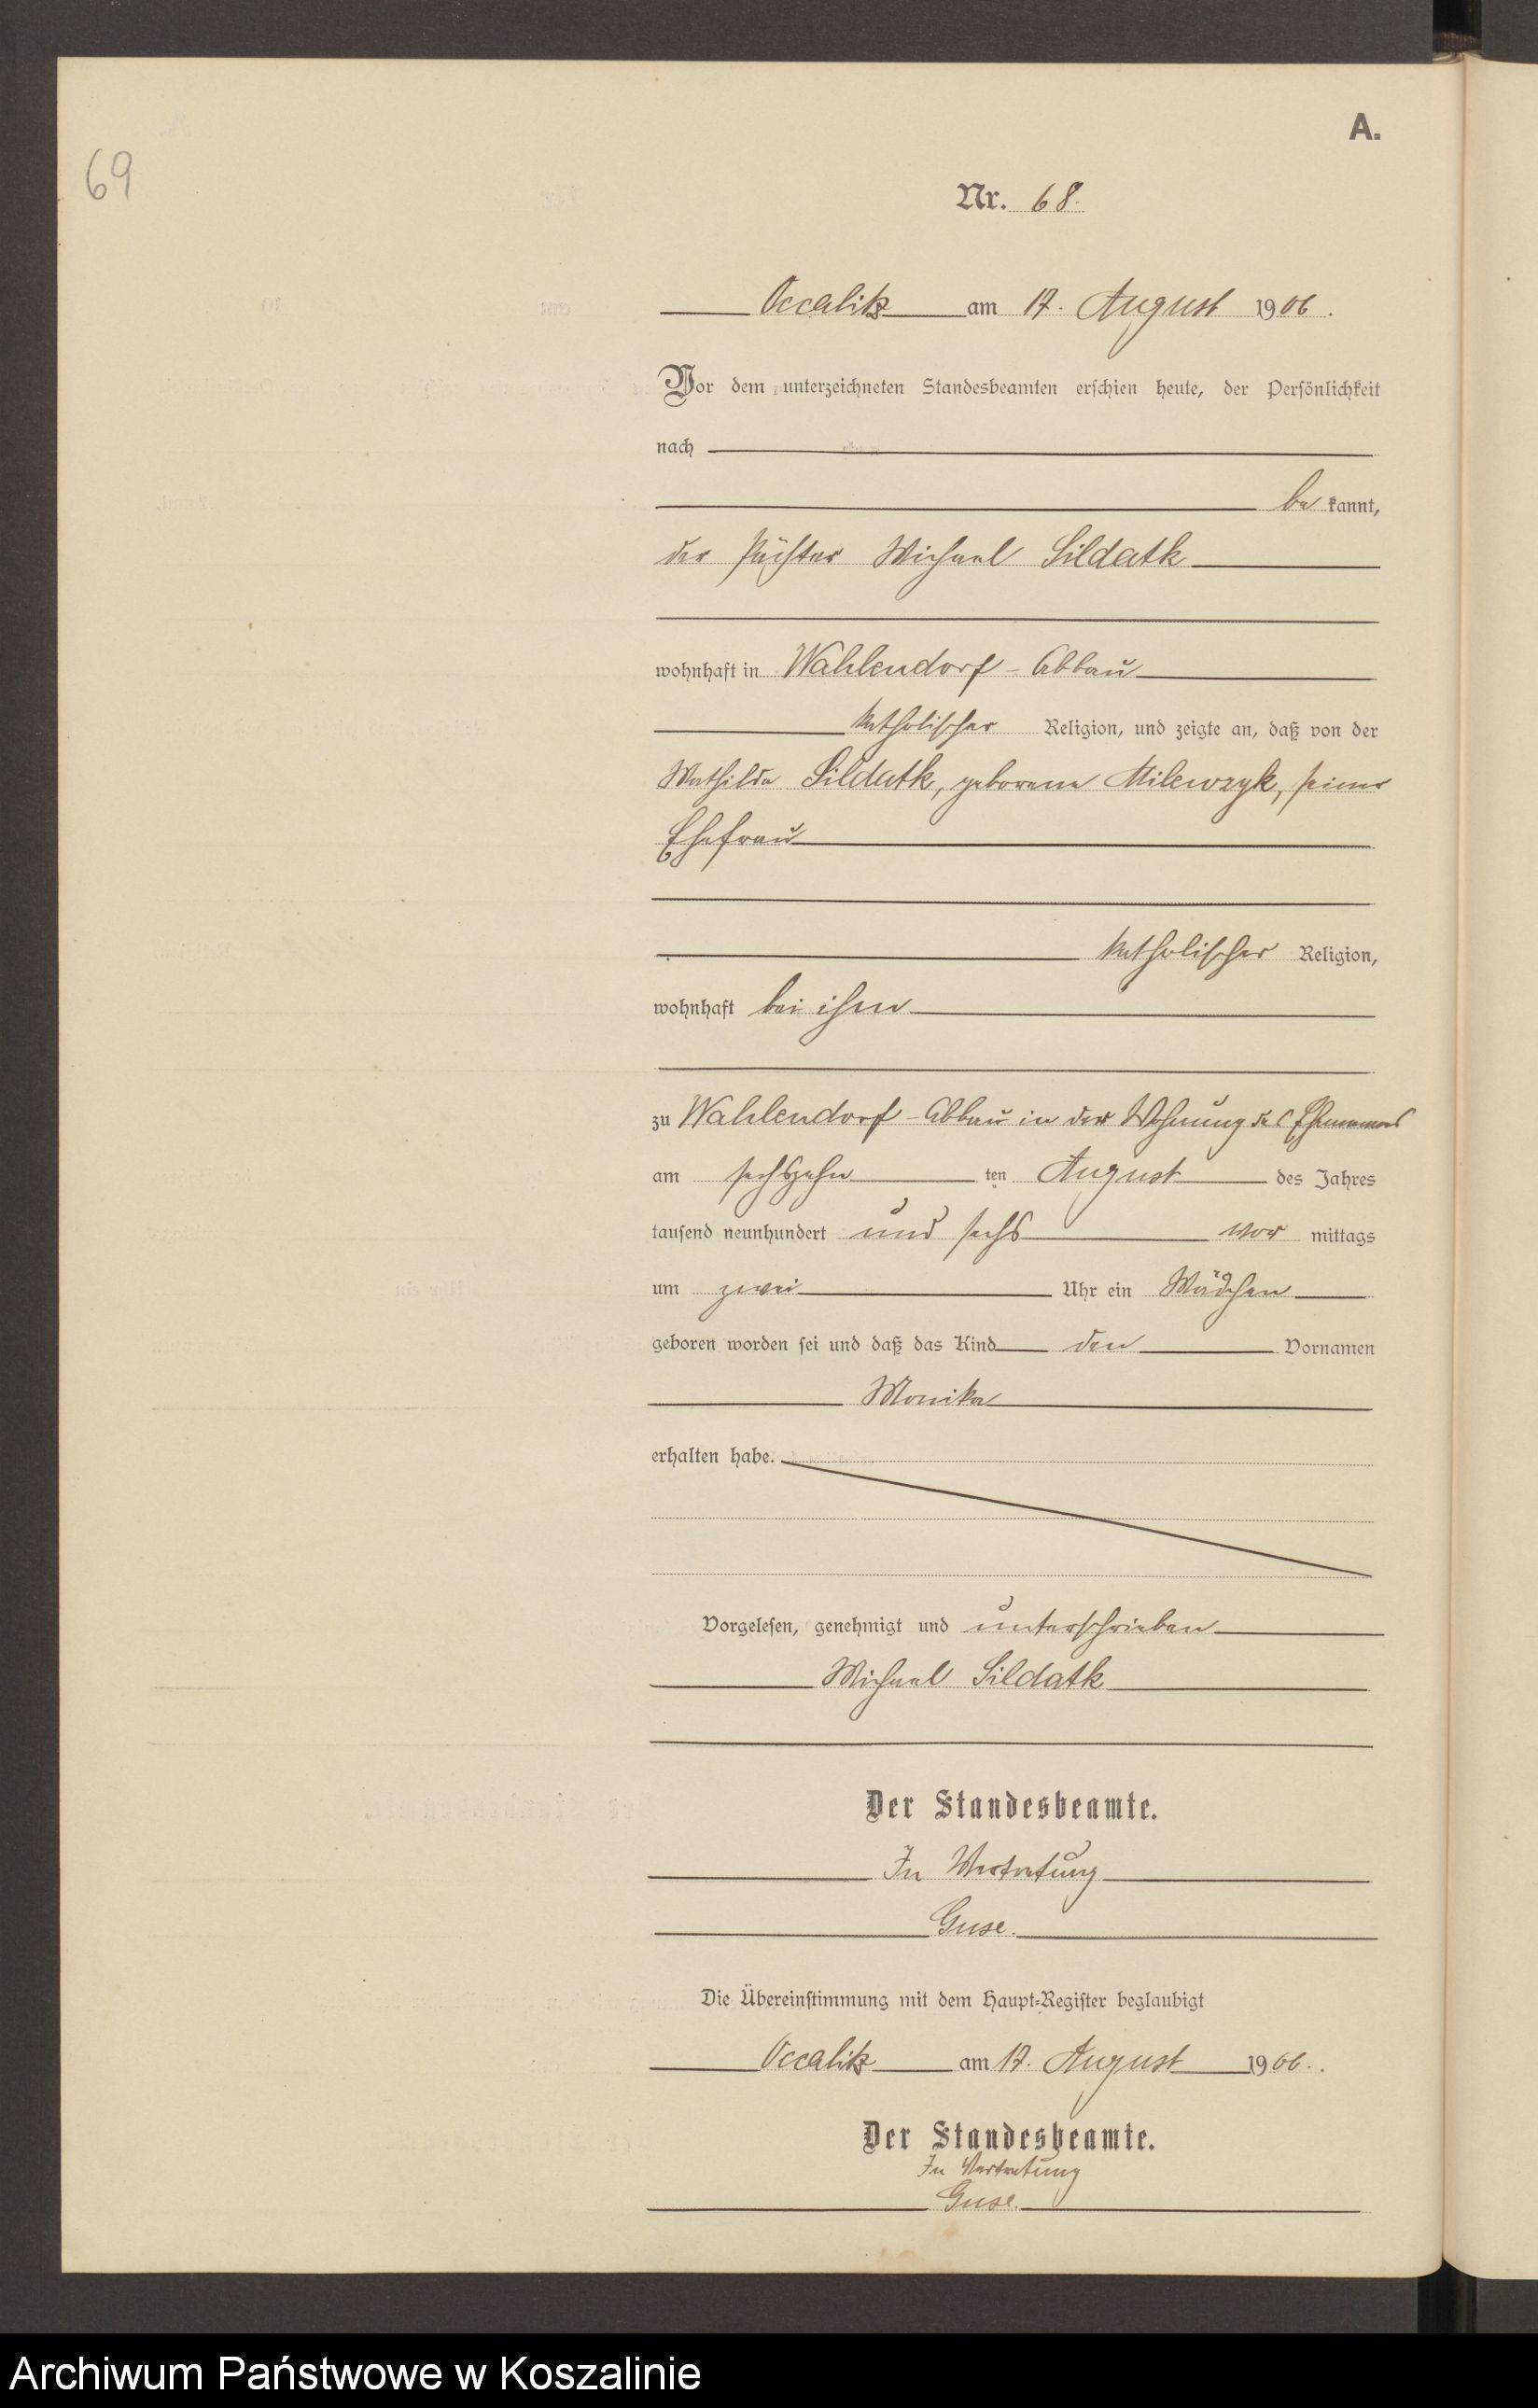 A.
69
Nr. 68.
Occalitz am 17. August 1906.
Vor dem unterzeichneten Standesbeamten erschien heute, der Persönlichkeit
nach
be kannt,
der Pächter Michael Sildatk
wohnhaft in Wahlendorf - Abbau
katholischer Religion, und zeigte an, daß von der
Mathilde Sildatk, geborene Milewzyk, seiner
Ehefrau
katholischer Religion,
wohnhaft bei ihm
zu Wahlendorf - Abbau in der Wohnung des Ehemannes
am sechszehn ten August des Jahres
tausend neunhundert und sechs vor mittags
um zwei Uhr ein Mädchen
geboren worden sei und daß das Kind den Vornamen
Monika
erhalten habe.
Vorgelesen, genehmigt und unterschrieben
Michael Sildatk
Der Standesbeamte.
In Vertretung
Guse.
Die Übereinstimmung mit dem Haupt-Register beglaubigt
Occalitz am 17. August 1906.
Der Standesbeamte.
In Vertretung
Guse.
Archiwum Państwowe w Koszalinie